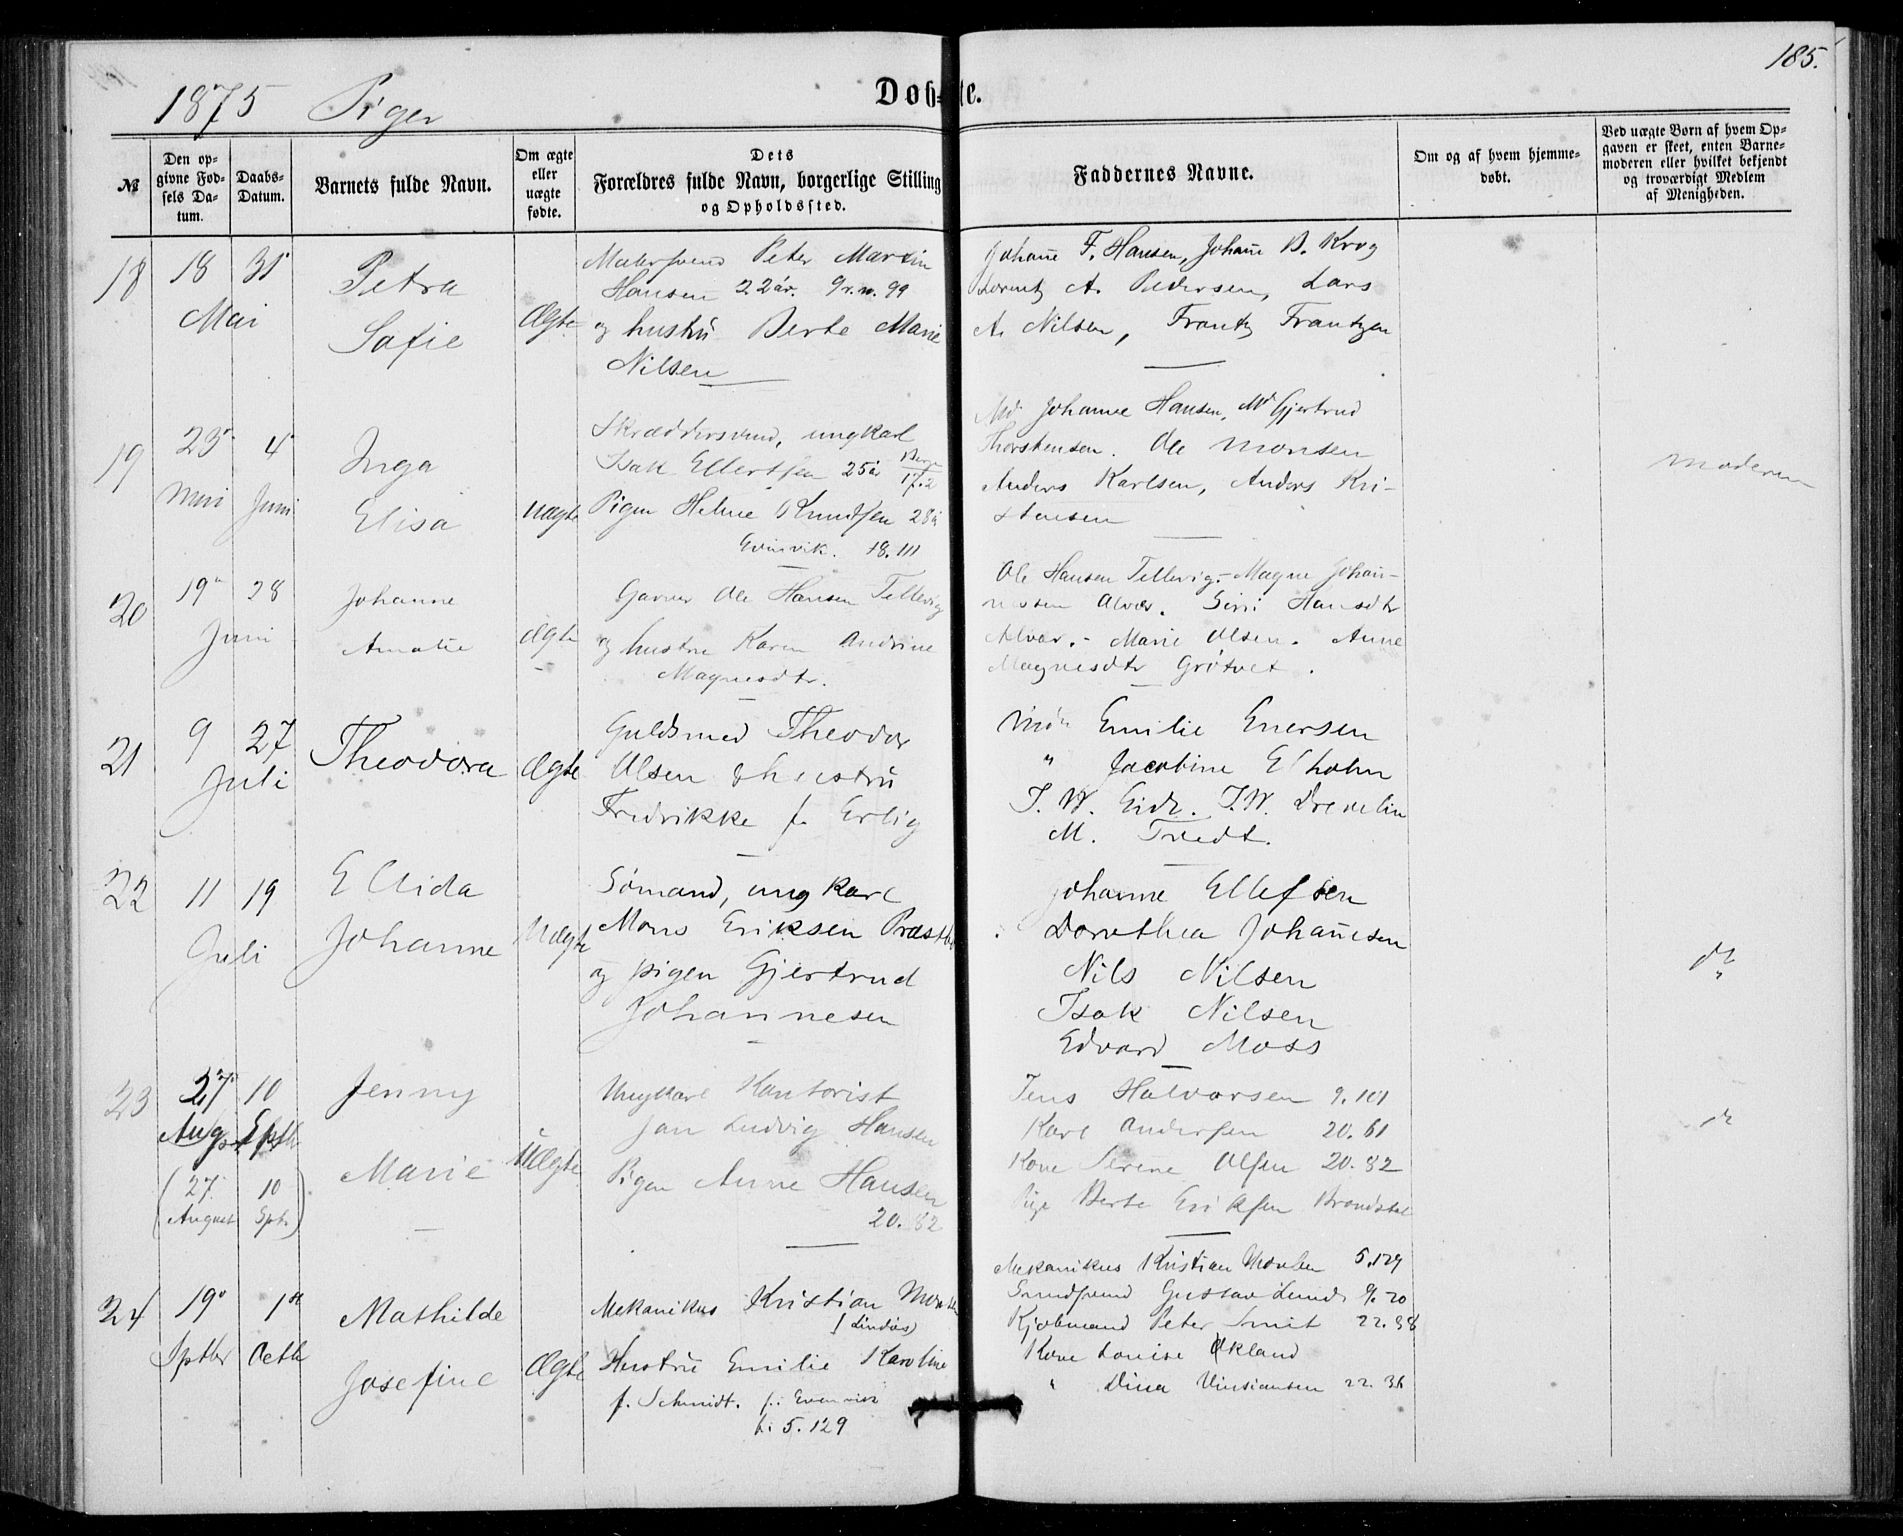 185.
1875 Piger
Døbte.
№
Den opgivne Fødsels Datum.
Daabs-Datum.
Barnets fulde Navn.
Om ægte eller uægte fødte.
Dets Forældres fulde Navn, borgerlige Stilling og Opholdssted.
Faddernes Navne.
Om og af hvem hjemmedøbt.
Ved uægte Børn af hvem Opgaven er skeet, enten Barnemoderen eller hvilket bekjendt og troværdigt Medlem af Menigheden.
18
18 31
Mai
Petra
Sofie
Ægte
Malersvend Peter Martin
Hansen 22 år. 9r. n. 99
og hustru Berte Marie
Nilsen
Johane F. Hansen, Johane B. Krog
Lorentz A. Pedersen, Lars
A. Nilsen, Frantz Frantzen
19
23 4
Mai Juni
Inga
Elisa
Uægte
Skræddersvend, ungkarl
Isak Ellertsen 25 år
17.2
Pigen Heline Knudsen 28 å
Evinvik. 18.111
Md Johanne Hansen, Md Gjertrud
Thorstensen. Ole Monsen
Anders Karlsen, Anders Kri-
stensen
Moderen
20
19 28
Juni
Johanne
Amalie
Ægte
Garver Ole Hansen Tellevig
og hustru Karen Andrine
Magnesdtr.
Ole Hansen Tellevig - Magne Johan-
nesen Alver. Siri Hansdtr
Alver. - Marie Olsen. Anne
Magnesdtr Grøtvet.
21
9 27
Juli
Theodora
Ægte
Guldsmed Theodor
Olsen & hustru
Fredrikke f. Erlig
Emilie Enersen
" Jacobine Elholm
J. W. Eide. J. W. Drevelin
M. Tvedt.
22
11 19
Juli
Ellida
Johanne
Uægte
Sømand, ungkarl
Mons Eriksen
og pigen Gjertrud
Johannesen
Johanne Ellefsen
Dorothea Johanesen
Nils Nilsen
Isak Nilsen
Edvard Moss
do
"
23
27 10
Aug Sptb
(27 10
August Sptr)
Jenny
Marie
Uægte
Ungkarl Kontorist
Jan Ludvig Hansen
Pigen Anne Hansen
20.82
Jens Halvorsen 9.101
Karl Andersen 20.61
Kone Serene Olsen 20.82
Pige Berte Eriksen Brandstal
do
24
19 1st
Sptbr Octb
Mathilde
Josefine
Ægte
Mekanikus Kristian
(Lindås)
Hustru Emilie Karoline
f. Schmidt. f. Evenvik
b. 5.129
Mekanikus Kristian 5.129
Gustav Lund 9.20
Kjøbmand Peter Smit 22.38
Kone Louise Økland
" Dina 22.36